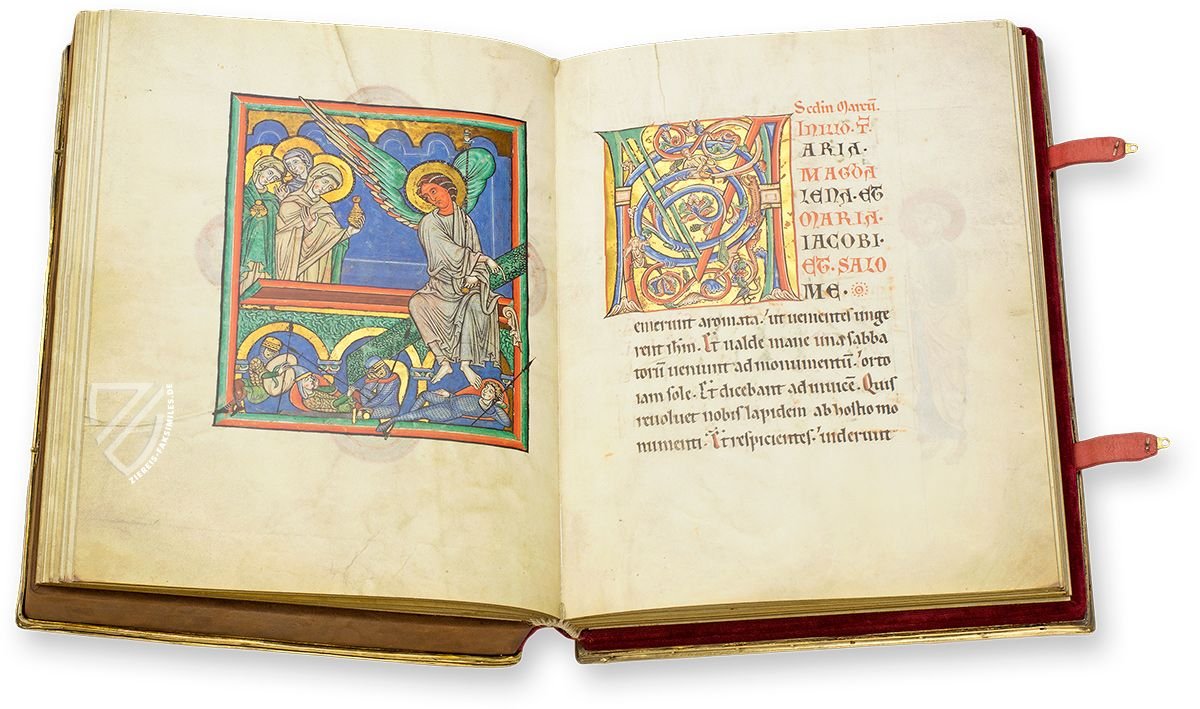 Sedin Marcū.
IN ILLO · T̄.
ARIA ·
MAGDA
LENA · ET
MARIA ·
IACOBI ·
ET · SALO
ME ·
emerunt aromata. ut uenientes unge
rent ihm. Et ualde mane una sabba
torū ueniunt ad monumentū. orto
iam sole. Et dicebant adinuicē. Quis
reuoluet nobis lapidem ab hostio mo
numenti. Et respicientes. uiderunt
ZIEREIS-FAKSIMILES.DE